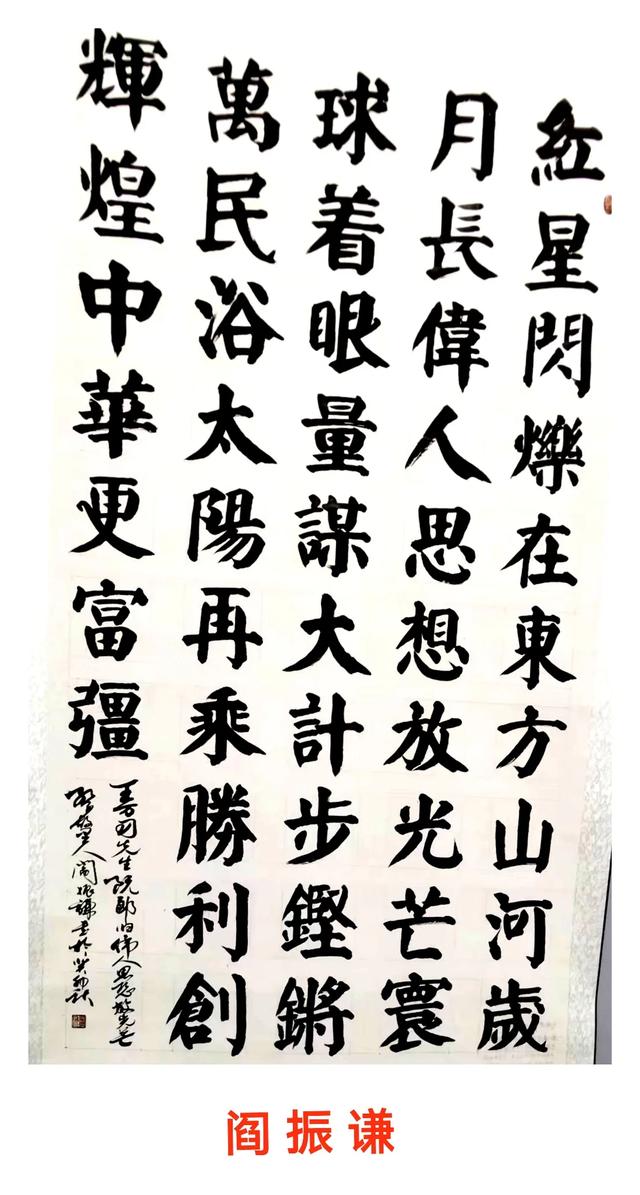 紅星閃爍在東方山河歲
月長偉人思想放光芒寰
球着眼量謀大計步鏗鏘
萬民浴太陽再乘勝利創
輝煌中華更富彊
先生阮郎归伟人思想放光芒
人阎振谦书於癸卯秋
阎振谦